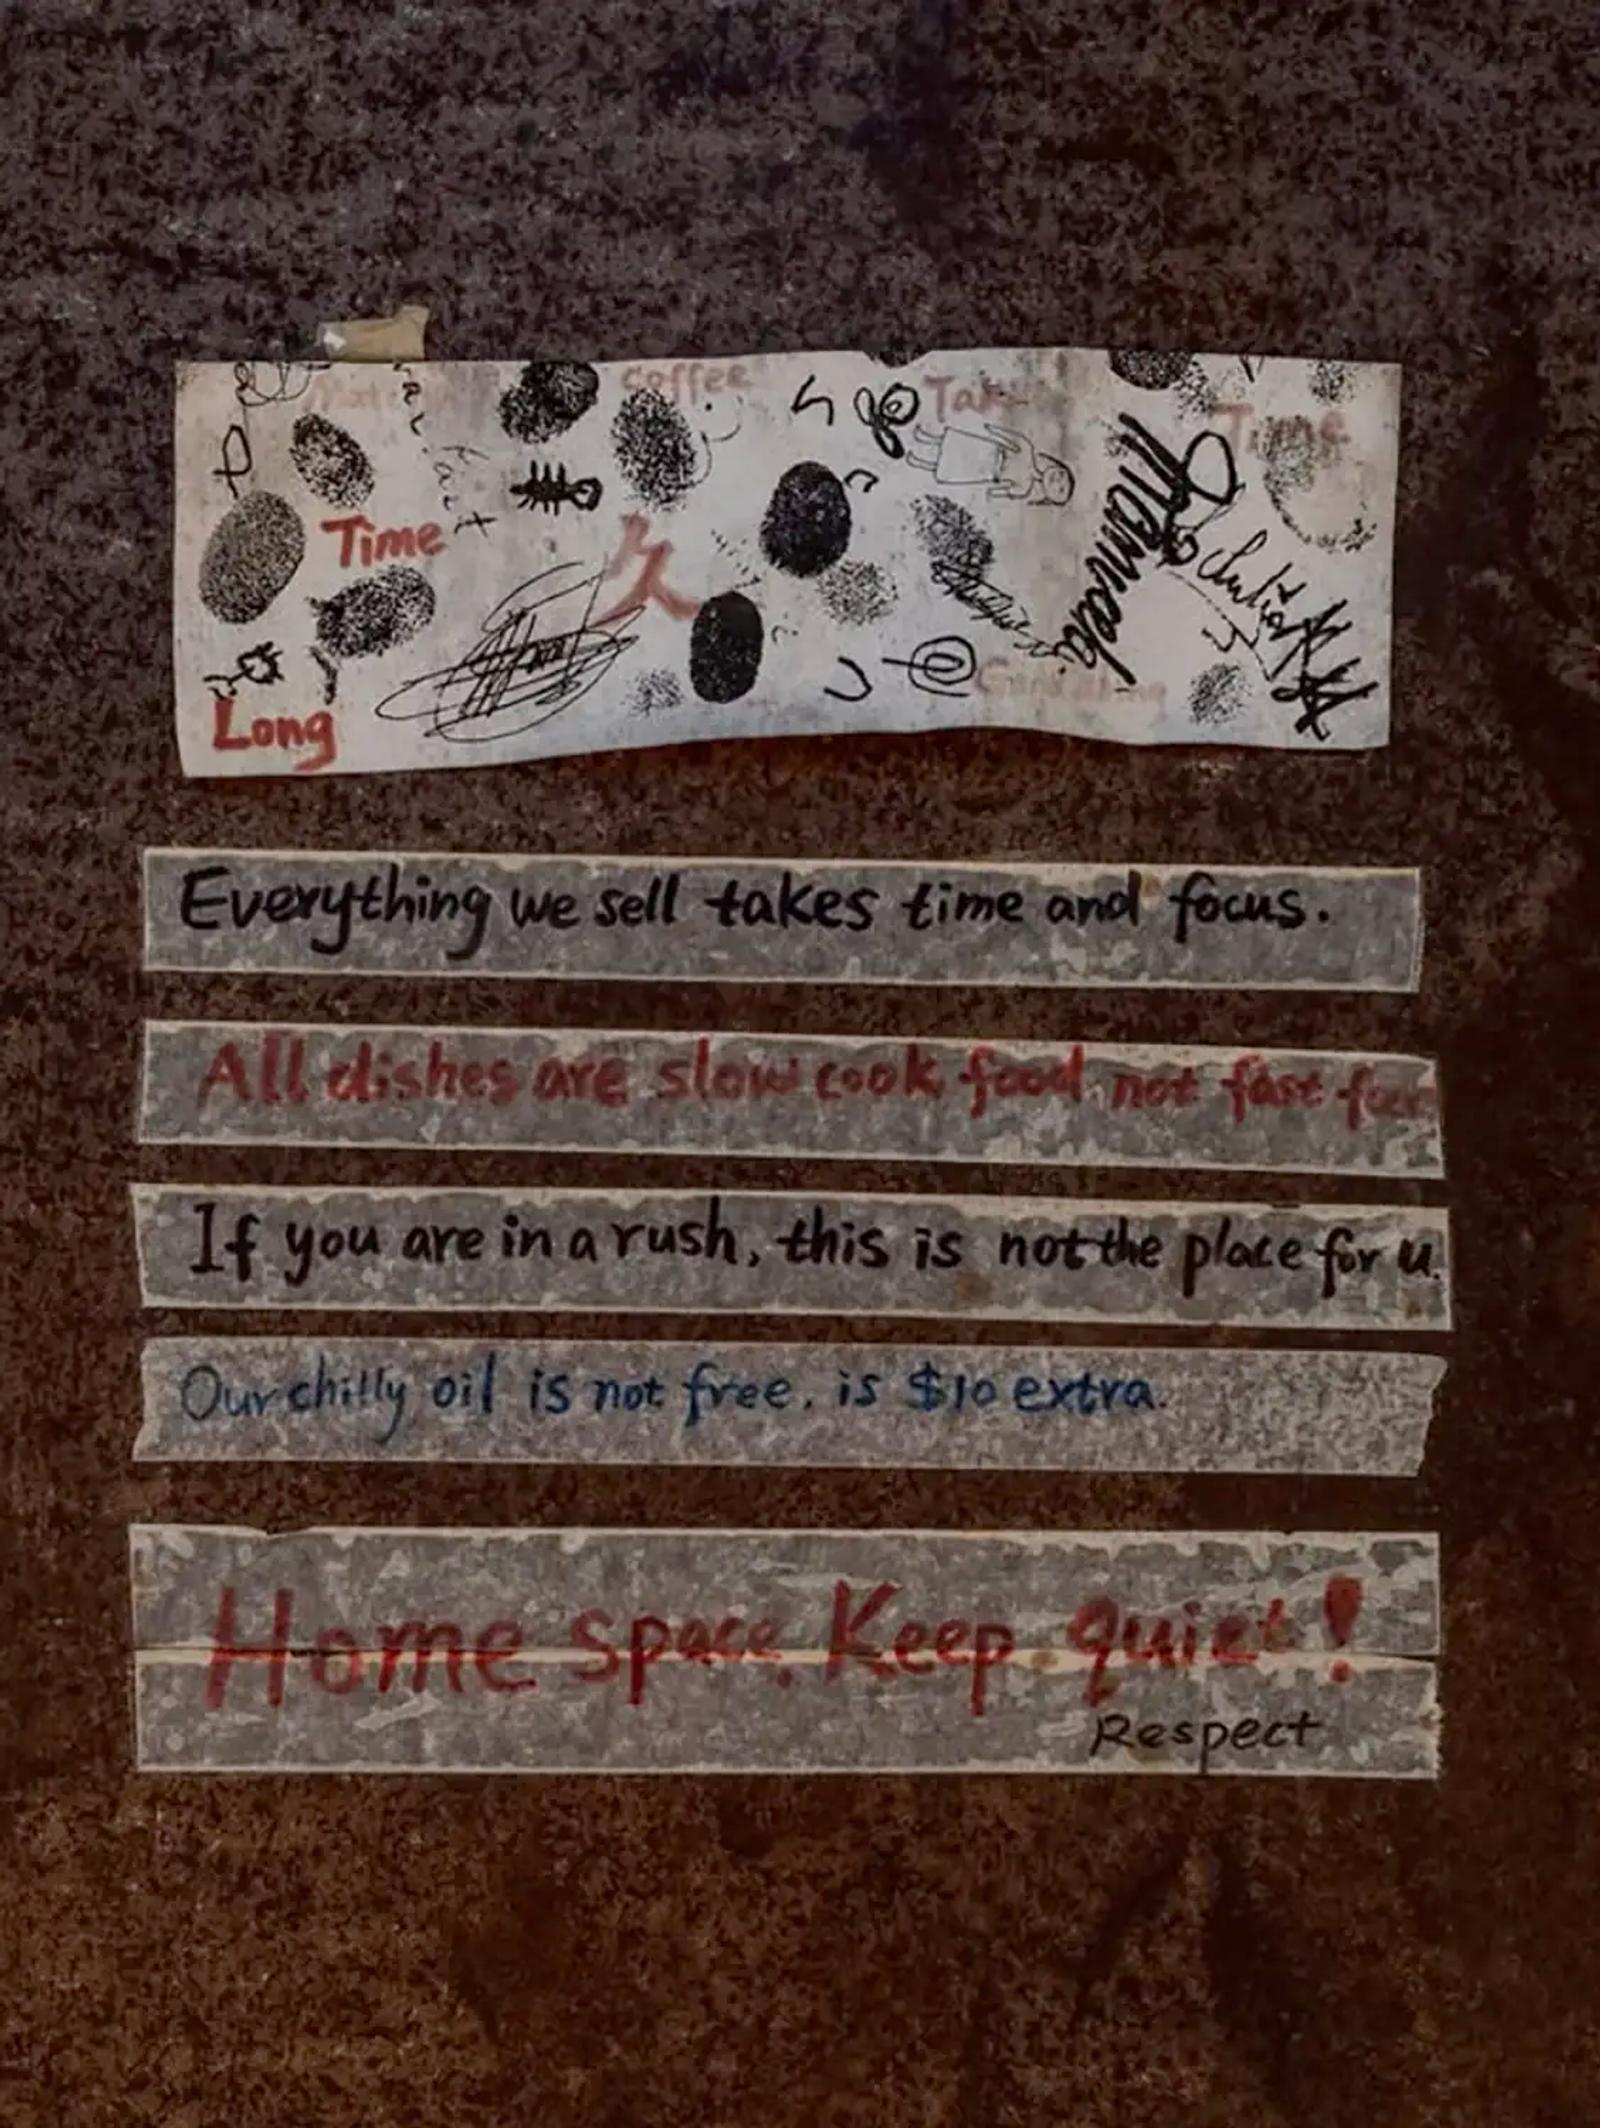 coffee
Take
Time
Time
久
Mamacki
Long
Everything we sell takes time and focus.
All dishes are slow cook food not fast food
If you are in a rush, this is not the place for u.
Our chilly oil is not free. is $10 extra.
Home space. Keep quiet!
Respect